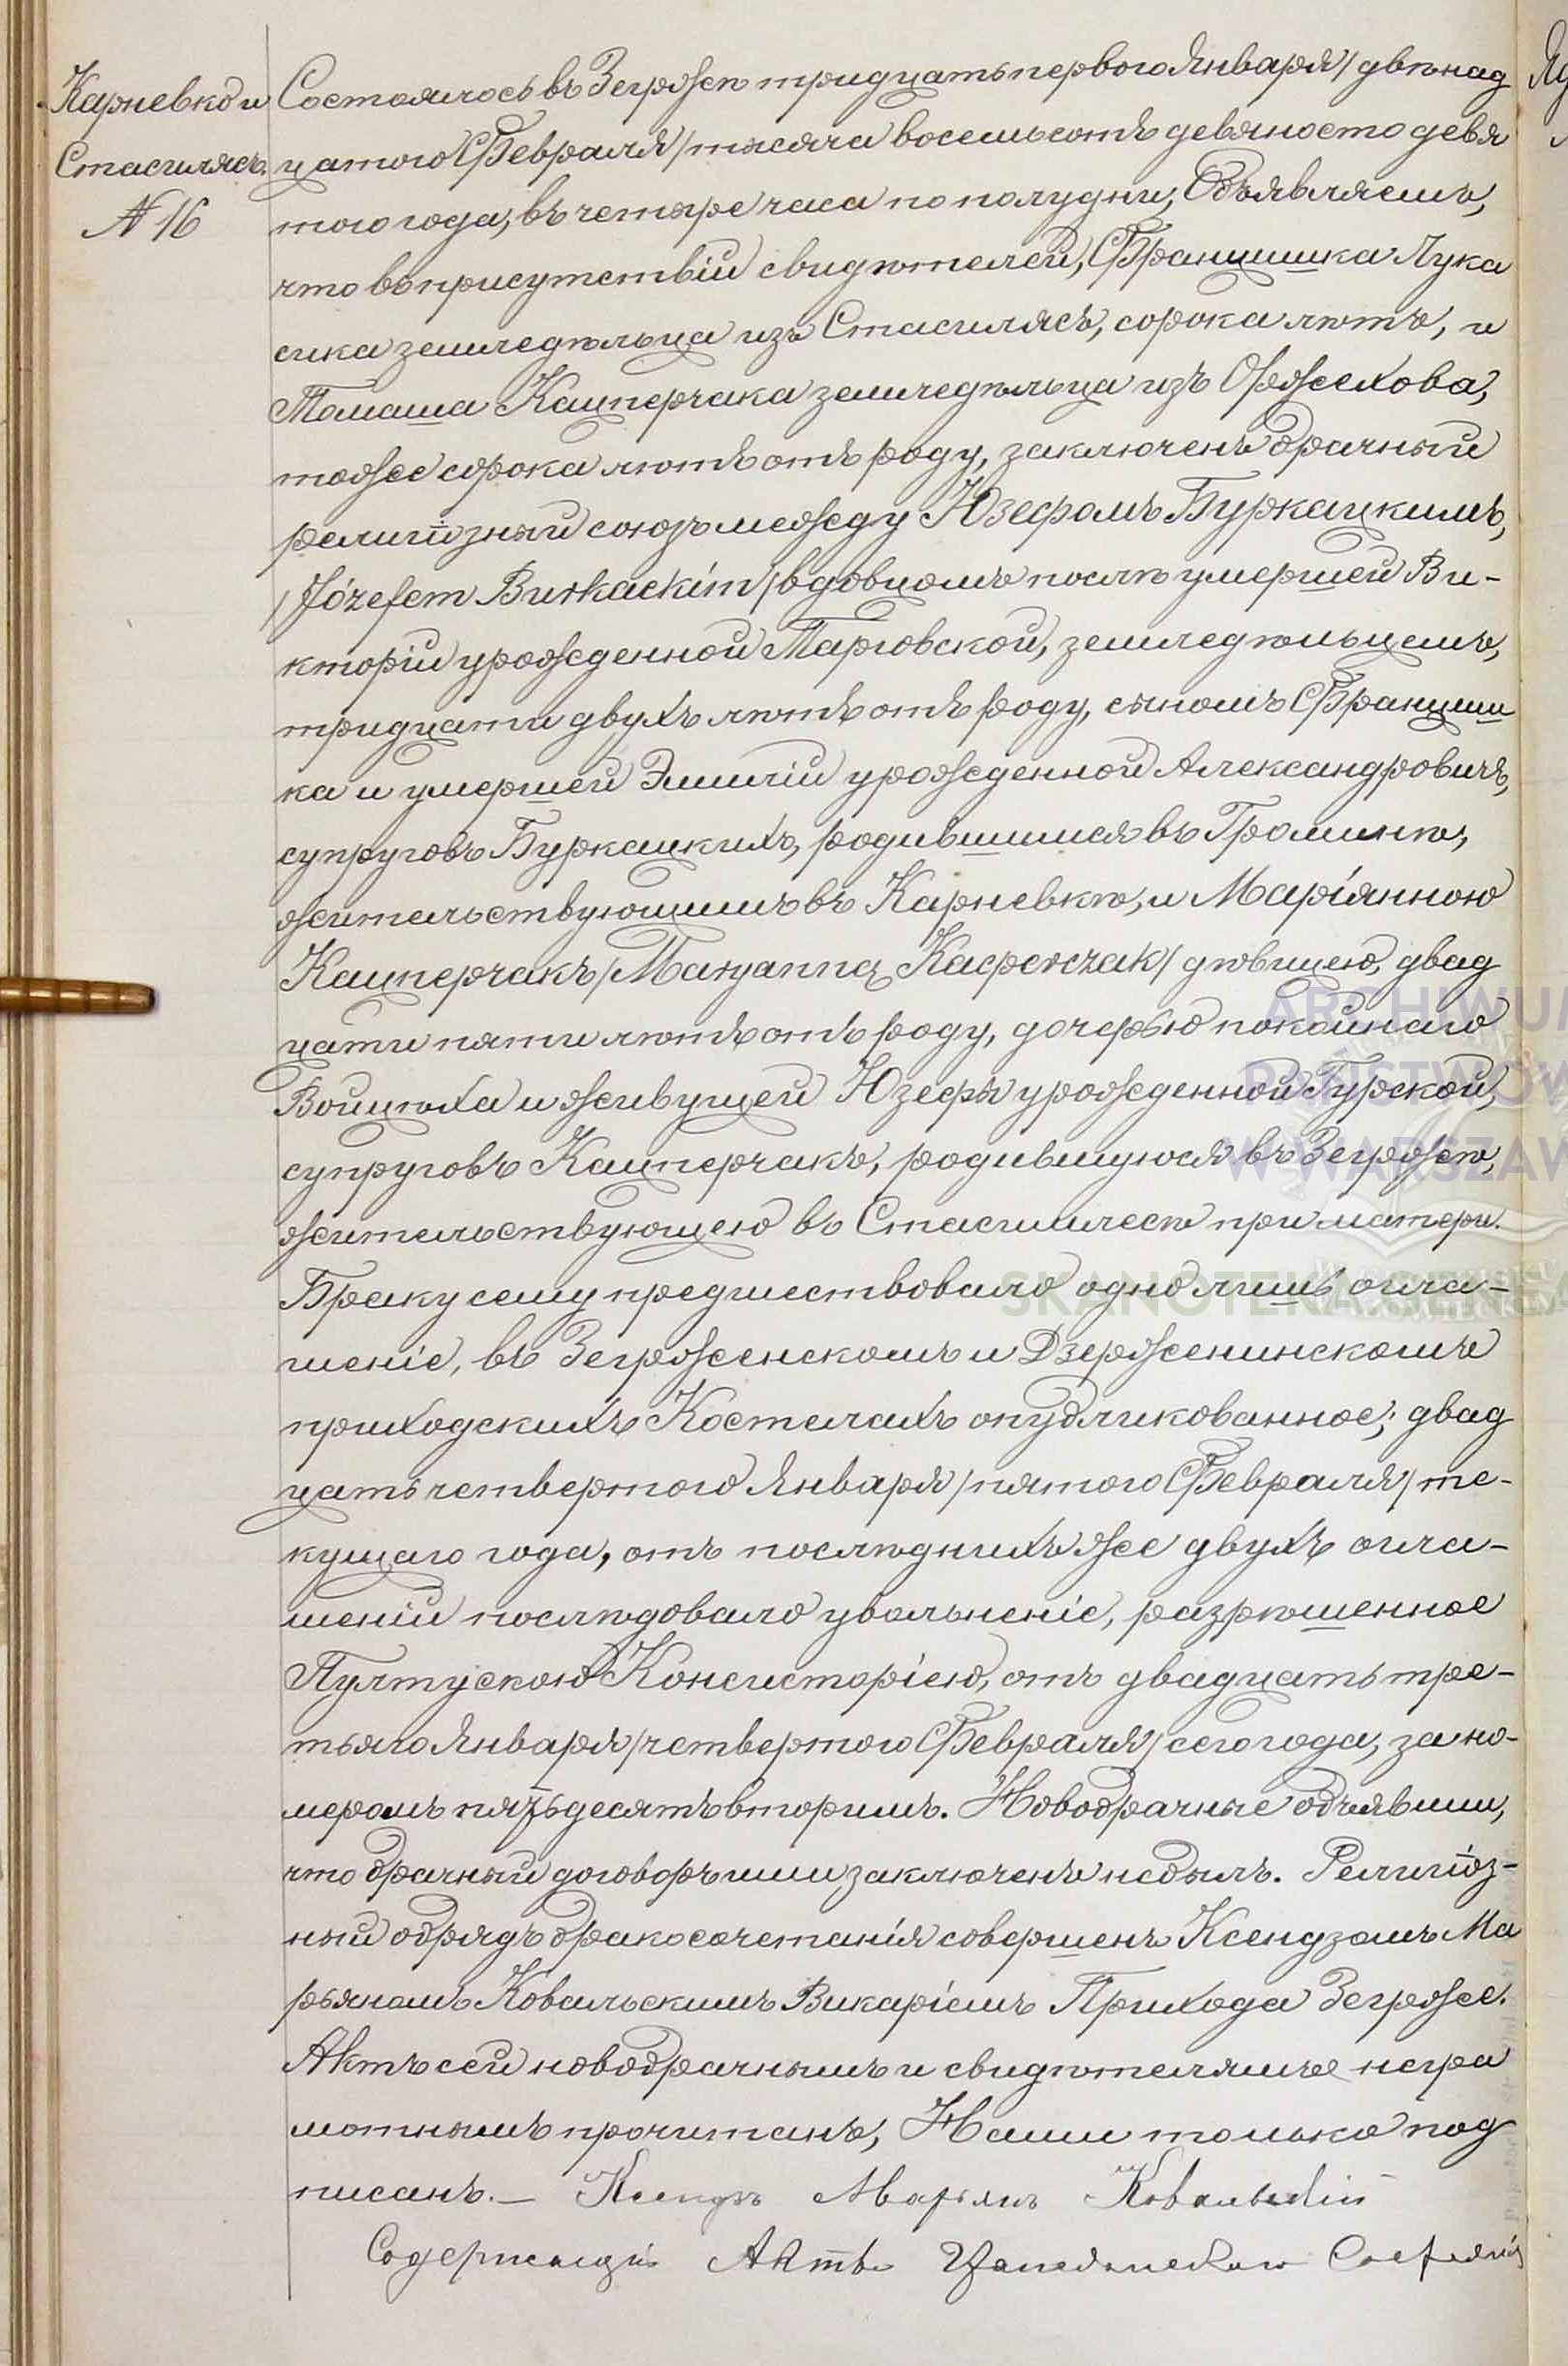 Карневко и
Стасилясъ.
№ 16
Состоялось въ Зегрже тридцать перваго Января / двѣнад
цатаго Февраля / тысяча восемьсотъ девяносто девя
таго года, въ четыре часа по полудни, Объявляемъ,
что въ присутствіи свидѣтелей, Францишка Лука
сика земледѣльца изъ Стасилясъ, сорока лѣтъ, и
Томаша Кацперчака земледѣльца изъ Оржехова,
тоже сорока лѣтъ отъ роду, заключенъ брачный
религіозный союзъ между Юзефомъ Буркацкимъ,
/ Józefem Burkackim / вдовцомъ послѣ умершей Ви-
кторіи урожденной Тарговской, земледѣльцемъ,
тридцати двухъ лѣтъ отъ роду, сыномъ Францши
ка и умершей Эмиліи урожденной Александровичъ,
супруговъ Буркацкихъ, родившимся въ Громинѣ,
жительствующимъ въ Карневкѣ, и Маріянною
Кацперчакъ / Maryanną Kacperczak / дѣвицею, двад
цати пяти лѣтъ отъ роду, дочерью покойнаго
Войцѣха и живущей Юзефы урожденной Гурской,
супруговъ Кацперчакъ, родившуюся въ Зегржѣ,
жительствующею въ Стасилесѣ при матери.
Браку сему предшествовало одно лишь огла-
шеніе, въ Зегрженскомъ и Дзерженинскомъ
приходскихъ Костелахъ опубликованное; двад
цать четвертого Января / пятого Февраля / те-
кущаго года, отъ послѣднихъ же двухъ огла-
шеніи послѣдовало увольненіе, разрѣшенное
Пултускою Консисторіею, отъ двадцать тре-
тьяго Января / четвертого Февраля / сего года, за но-
меромъ пятьдесятъ вторимъ. Новобрачные объявили,
что брачный договоръ ими заключенъ небылъ. Религіоз-
ный обрядъ бракосочетанія совершенъ Ксендзомъ Ма
рьяномъ Ковальскимъ Викаріемъ Прихода Зегрже.
Актъ сей новобрачнымъ и свидѣтелямъ негра
мотнымъ прочитанъ, Нами только под
писанъ. — Ксендзъ Марьянъ Ковальскій
Содержащій Актъ Гражданскаго Состоянія